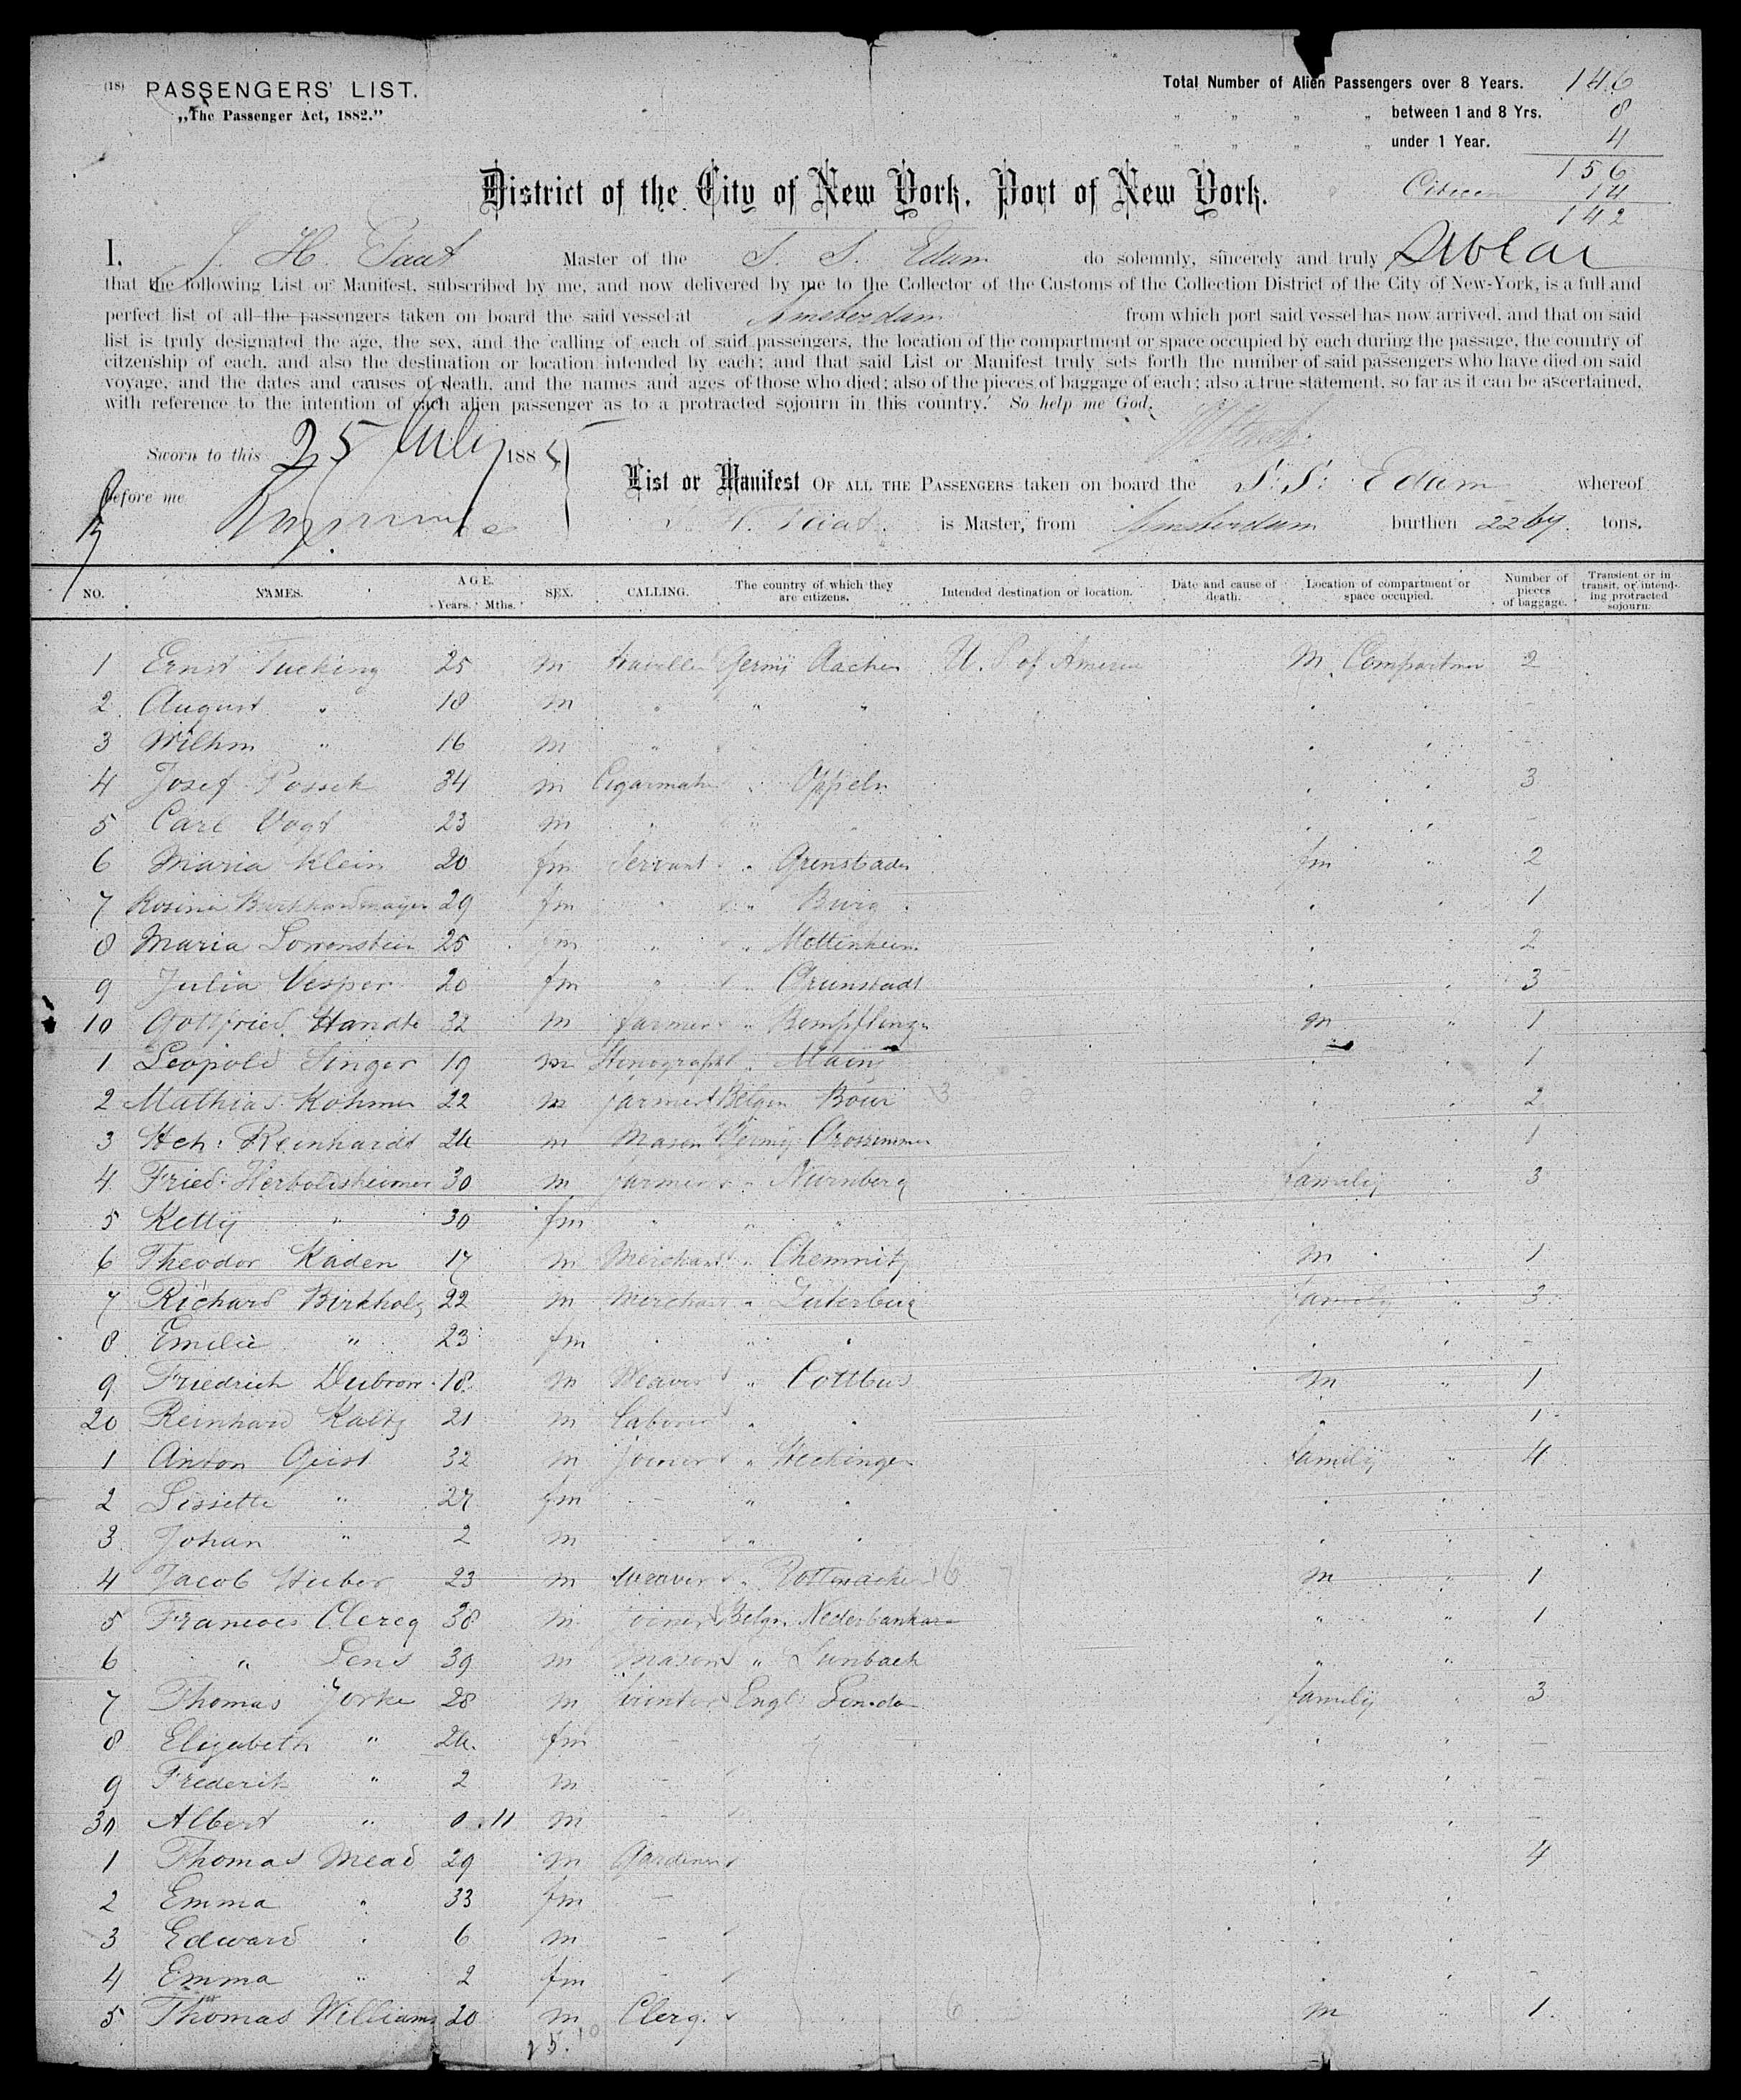 (18) PASSENGERS' LIST.
„The Passenger Act, 1882."
Total Number of Alien Passengers over 8 Years. 146
„ „ „ „ between 1 and 8 Yrs. 8
„ „ „ „ under 1 Year. 4
156
Citizen 14
142
District of the City of New York, Port of New York.
I, J. H. Taat Master of the S. S. Edam do solemnly, sincerely and truly swear
that the following List or Manifest, subscribed by me, and now delivered by me to the Collector of the Customs of the Collection District of the City of New-York, is a full and
perfect list of all the passengers taken on board the said vessel at Amsterdam from which port said vessel has now arrived, and that on said
list is truly designated the age, the sex, and the calling of each of said passengers, the location of the compartment or space occupied by each during the passage, the country of
citzenship of each, and also the destination or location intended by each; and that said List or Manifest truly sets forth the number of said passengers who have died on said
voyage, and the dates and causes of death, and the names and ages of those who died; also of the pieces of baggage of each; also a true statement, so far as it can be ascertained,
with reference to the intention of each alien passenger as to a protracted sojourn in this country. So help me God.
Sworn to this 25 July 1885
Before me
List or Manifest OF ALL THE PASSENGERS taken on board the S. S. Edam whereof
J. H. Taat is Master, from Amsterdam burthen tons.
NO. NAMES. AGE. Years. Mths. SEX. CALLING. The country of which they are citizens. Intended destination or location. Date and cause of death. Location of compartment or space occupied. Number of pieces of baggage. Transient or in transit, or intending protracted sojourn.
1 Ernst Tucking 25 m Germy Aachen U. S of America M. 2
2 August „ 18 m „ „ „
3 Wilhm „ 16 m „
4 Josef Possek 34 m „ Oppeln 3
5 Carl Vogt 23 m
6 Maria Klein 20 fm Servant „ fm 2
7 Rosina 29 fm „ „ Burg 1
8 Maria Lowenstein 25 fm „ „ Mottenheim 2
9 Julia Vesper 20 fm „ „ Grunstadt 3
10 Gottfried Handte 32 m farmer „ m 1
1 Leopold Singer 19 m „ 1
2 Mathias Kohmen 22 m farmer Belgien 2
3 Hch: Reinhardt 24 m Mason Germy 1
4 Fried: Herboldsheimer 30 m farmer „ Nürnberg family 3
5 Ketty „ 30 fm „ „ „
6 Theodor Kaden 17 m Merchant „ Chemnitz m 1
7 Richard Birkholz 22 m Merchant „ family 3
8 Emilie „ 23 fm
9 Friedrich Dubrow 18 m Weaver „ Cottbus m 1
20 Reinhard Kaltz 21 m Laborer „ 1
1 Anton Geist 32 m joiner „ Hechingen family 4
2 Lissette „ 27 fm - „
3 Johan „ 2 m - „
4 Jacob Huber 23 m weaver „ m 1
5 Francois Clercq 38 m joiner Belgn „ 1
6 „ Lens 39 m mason „ „ -
7 Thomas Yorke 28 m Engl: family 3
8 Elizabeth „ 24 fm - -
9 Frederik „ 2 m - -
30 Albert „ 0. 11 m - -
1 Thomas Mead 29 m Gardener 4
2 Emma „ 33 fm -
3 Edward „ 6 m -
4 Emma „ 2 fm - -
5 Thomas Williams 20 m Clerg. 6 m 1.
25. 10